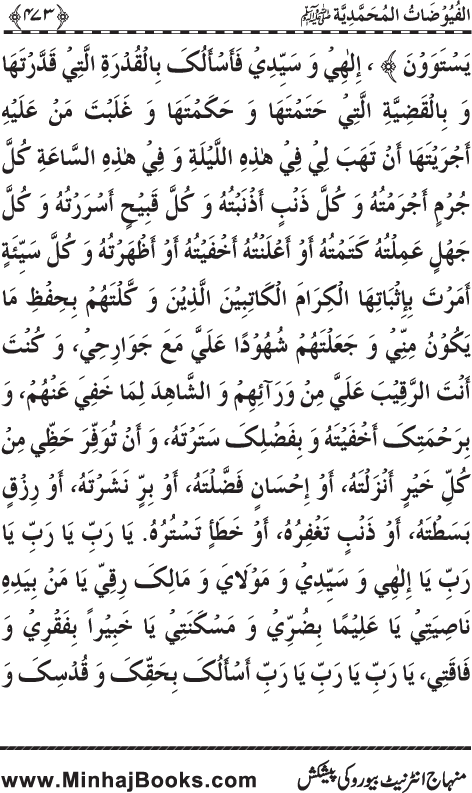 الفُيُوْضَاتُ المُحَمَّدِيَّة ﷺ ﴿۴۷۳﴾
يَسْتَوَوْنَ ﴾ ، إِلٰهِيْ وَ سَيِّدِيْ فَأَسْأَلُکَ بِالْقُدْرَةِ الَّتِيْ قَدَّرْتَهَا
وَ بِالْقَضِيَّةِ الَّتِيْ حَتَمْتَهَا وَ حَکَمْتَهَا وَ غَلَبْتَ مَنْ عَلَيْهِ
أَجْرَيْتَهَا أَنْ تَهَبَ لِي فِيْ هٰذِهِ اللَّيْلَةِ وَ فِيْ هٰذِهِ السَّاعَةِ کُلَّ
جُرْمٍ أَجْرَمْتُهُ وَ کُلَّ ذَنْبٍ أَذْنَبْتُهُ وَ کُلَّ قَبِيْحٍ أَسْرَرْتُهُ وَ کُلَّ
جَهْلٍ عَمِلْتُهُ کَتَمْتُهُ أَوْ أَعْلَنْتُهُ أَخْفَيْتُهُ أَوْ أَظْهَرْتُهُ وَ کُلَّ سَيِّئَةٍ
أَمَرْتَ بِإِثْبَاتِهَا الْکِرَامَ الْکَاتِبِيْنَ الَّذِيْنَ وَ کَّلْتَهُمْ بِحِفْظِ مَا
يَکُوْنُ مِنِّي وَ جَعَلْتَهُمْ شُهُوْدًا عَلَيَّ مَعَ جَوَارِحِي، وَ کُنْتَ
أَنْتَ الرَّقِيْبَ عَلَيَّ مِنْ وَرَآئِهِمْ وَ الشَّاهِدَ لِمَا خَفِيَ عَنْهُمْ، وَ
بِرَحْمَتِکَ أَخْفَيْتَهُ وَ بِفَضْلِکَ سَتَرْتَهُ، وَ أَنْ تُوَفِّرَ حَظِّي مِنْ
کُلِّ خَيْرٍ أَنْزَلْتَهُ، أَوْ إِحْسَانٍ فَضَّلْتَهُ، أَوْ بِرٍّ نَشَرْتَهُ، أَوْ رِزْقٍ
بَسَطْتَهُ، أَوْ ذَنْبٍ تَغْفِرُهُ، أَوْ خَطَأٍ تَسْتُرُهُ. يَا رَبِّ يَا رَبِّ يَا
رَبِّ يَا إِلٰهِي وَ سَيِّدِي وَ مَوْلَايَ وَ مَالِکَ رِقِّي يَا مَنْ بِيَدِهِ
نَاصِيَتِيْ يَا عَلِيْمًا بِضُرِّيْ وَ مَسْکَنَتِيْ يَا خَبِيْراً بِفَقْرِيْ وَ
فَاقَتِي، يَا رَبِّ يَا رَبِّ يَا رَبِّ أَسْأَلُکَ بِحَقِّکَ وَ قُدْسِکَ وَ
منہاج انٹرنیٹ بیورو کی پیشکش www.MinhajBooks.com